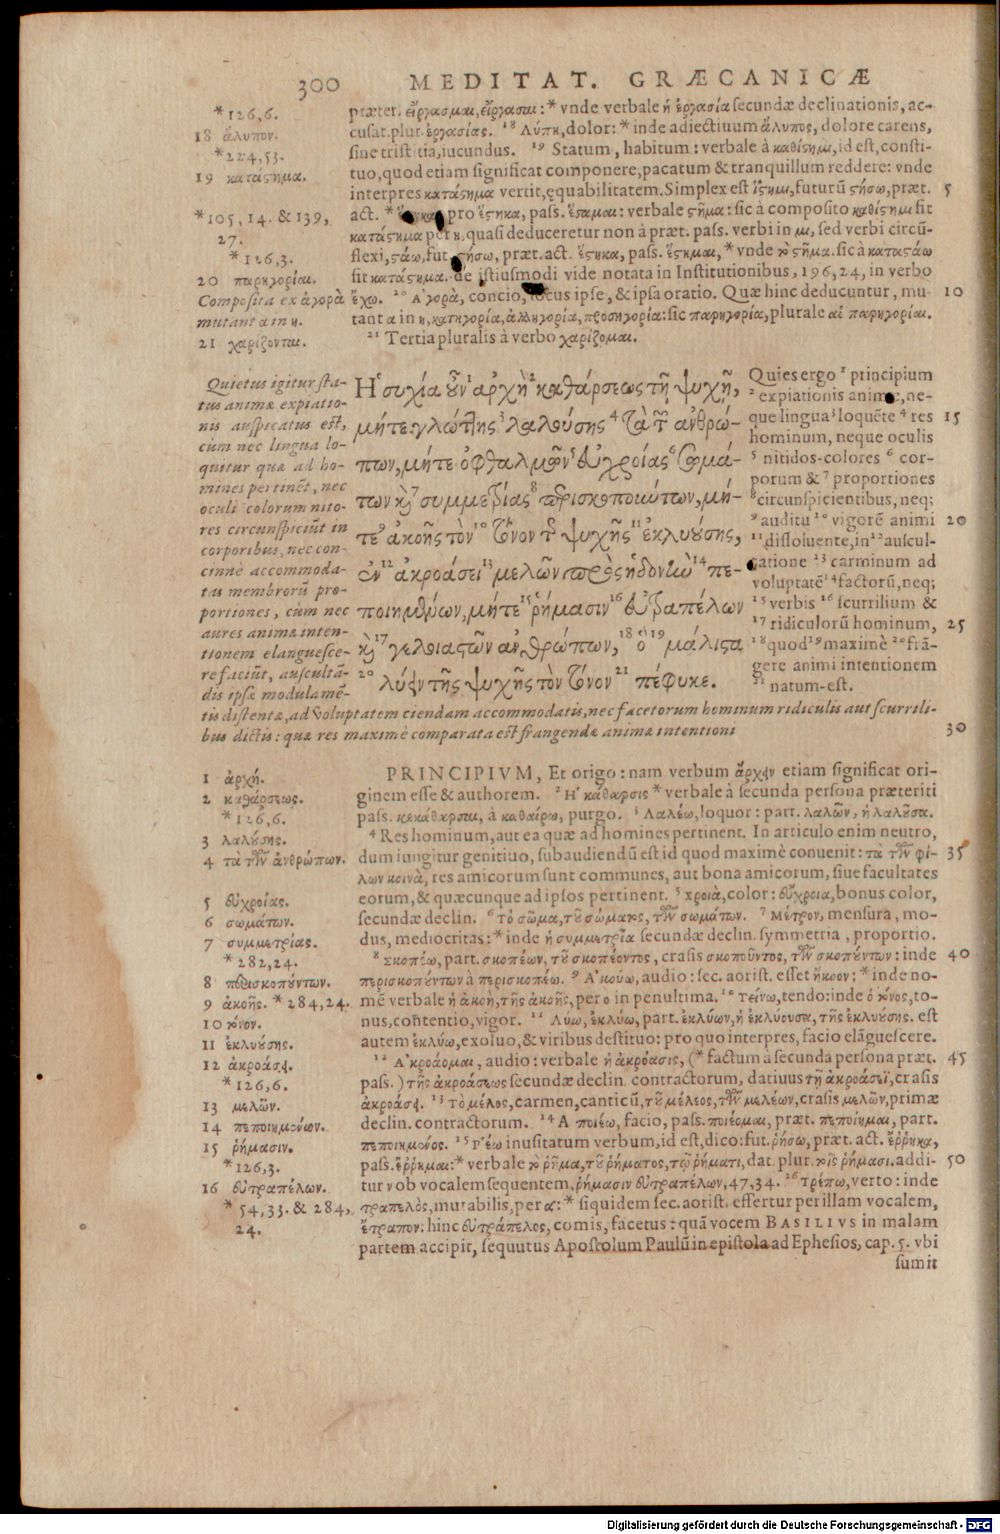 300 MEDITAT. GRÆCANICÆ
*126,6.
18 ἄλυπον.
*224,53.
19 κατάστημα.
*105, 14. & 139,
27.
*126,3.
20 παρηγορίαι.
Composita ex ἀγορὰ
mutant α in η.
21 χαρίζονται.
præter. εἴργασμαι, εἴργασαι: * vnde verbale ἡ ἐργασία secundæ declinationis, ac-
cusat. plur. ἐργασίας. 18 Λύπη, dolor: * inde adiectiuum ἄλυπος, dolore carens,
sine tristitia, iucundus. 19 Statum, habitum: verbale à καθίστημι, id est, consti-
tuo, quod etiam significat componere, pacatum & tranquillum reddere: vnde
interpres κατάστημα vertit, ęquabilitatem. Simplex est ἵστημι, futurũ στήσω, præt. 5
act. * pro ἕστηκα, pass. ἕσταμαι: verbale στῆμα: sic à composito καθίστημι fit
κατάστημα per η, quasi deduceretur non à præt. pass. verbi in μι, sed verbi circũ-
flexi, στάω, fut. στήσω, præt. act. ἕστηκα, pass. ἕστημαι, * vnde τὸ στῆμα. sic à καταστάω
fit κατάστημα. de istiusmodi vide notata in Institutionibus, 196,24, in verbo
ἔχω. 20 Ἀγορὰ, concio, locus ipse, & ipsa oratio. Quæ hinc deducuntur, mu- 10
tant α in η, κατηγορία, ἀλληγορία, προσηγορία: sic παρηγορία, plurale αἱ παρηγορίαι.
21 Tertia pluralis à verbo χαρίζομαι.
Quietus igitur sta-
tus animæ expiatio-
nis auspicatus est,
cùm nec lingua lo-
quitur quæ ad ho-
mines pertinẽt, nec
oculi colorum nito-
res circunspiciũt in
corporibus, nec con-
cinnè accommoda-
tas membrorũ pro-
portiones, cùm nec
aures animæ inten-
tionem elanguesce-
re faciũt, auscultã-
dis ipsæ modulamẽ-
tis distentæ, ad voluptatem ciendam accommodatis, nec facetorum hominum ridiculis aut scurrili-
bus dictis: quæ res maximè comparata est frangendæ animæ intentioni 30
Ἡσυχία οὖν 1 ἀρχὴ 2 καθάρσεως τῇ ψυχῇ,
μήτε γλώττης 3 λαλούσης 4 τὰ τῶν ἀνθρώ-
πων, μήτε ὀφθαλμῶν 5 εὐχροίας 6 σωμά-
των καὶ 7 συμμετρίας 8 περισκοπούντων, μή-
τε 9 ἀκοῆς τὸν 10 τόνον τῆς ψυχῆς 11 ἐκλυούσης,
ἐν 12 ἀκροάσει 13 μελῶν πρὸς ἡδονὴν 14 πε-
ποιημένων, μήτε 15 ῥήμασιν 16 εὐτραπέλων
καὶ 17 γελοιαστῶν ἀνθρώπων, 18 ὃ 19 μάλιστα
20 λύειν τῆς ψυχῆς τὸν τόνον 21 πέφυκε.
Quies ergo 1 principium
2 expiationis animæ, ne-
que lingua 3 loquẽte 4 res 15
hominum, neque oculis
5 nitidos-colores 6 cor-
porum & 7 proportiones
8 circunspicientibus, neq;
9 auditu 10 vigorẽ animi 20
11 dissoluente, in 12 auscul-
tatione 13 carminum ad
voluptatẽ 14 factorũ, neq;
15 verbis 16 scurrilium &
17 ridiculorũ hominum, 25
18 quod 19 maximè 20 frã-
gere animi intentionem
21 natum-est.
1 ἀρχή.
2 καθάρσεως.
*126,6.
3 λαλούσης.
4 τὰ τῶν ἀνθρώπων.
5 εὐχροίας.
6 σωμάτων.
7 συμμετρίας.
*282,24.
8 περισκοπούντων.
9 ἀκοῆς. *284,24.
10 τόνον.
11 ἐκλυούσης.
12 ἀκροάσει.
*126,6.
13 μελῶν.
14 πεποιημένων.
15 ῥήμασιν.
*126,3.
16 εὐτραπέλων.
*54,33. & 284,
24.
PRINCIPIVM, Et origo: nam verbum ἄρχειν etiam significat ori-
ginem esse & authorem. 2 Ἡ κάθαρσις * verbale à secunda persona præteriti
pass. κεκάθαρσαι, à καθαίρω, purgo. 3 Λαλέω, loquor: part. λαλῶν, ἡ λαλοῦσα.
4 Res hominum, aut ea quæ ad homines pertinent. In articulo enim neutro,
dum iungitur genitiuo, subaudiendũ est id quod maximè conuenit: τὰ τῶν φί- 35
λων κοινὰ, res amicorum sunt communes, aut bona amicorum, siue facultates
eorum, & quæcunque ad ipsos pertinent. 5 χροιὰ, color: εὔχροια, bonus color,
secundæ declin. 6 Τὸ σῶμα, τοῦ σώματος, τῶν σωμάτων. 7 Μέτρον, mensura, mo-
dus, mediocritas: * inde ἡ συμμετρία secundæ declin. symmetria, proportio.
8 Σκοπέω, part. σκοπέων, τοῦ σκοπέοντος, crasis σκοποῦντος, τῶν σκοπούντων: inde 40
περισκοπούντων à περισκοπέω. 9 Ἀκούω, audio: sec. aorist. esset ἤκοον; * inde no-
mẽ verbale ἡ ἀκοὴ, τῆς ἀκοῆς, per ο in penultima. 10 Τείνω, tendo: inde ὁ τόνος, to-
nus, contentio, vigor. 11 Λύω, ἐκλύω, part. ἐκλύων, ἡ ἐκλύουσα, τῆς ἐκλυούσης. est
autem ἐκλύω, exoluo, & viribus destituo: pro quo interpres, facio elãguescere.
12 Ἀκροάομαι, audio: verbale ἡ ἀκρόασις, (* factum à secunda persona præt. 45
pass.) τῆς ἀκροάσεως secundæ declin. contractorum, datiuus τῇ ἀκροάσεϊ, crasis
ἀκροάσει. 13 Τὸ μέλος, carmen, canticũ, τοῦ μέλεος, τῶν μελέων, crasis μελῶν, primæ
declin. contractorum. 14 A ποιέω, facio, pass. ποιέομαι, præt. πεποίημαι, part.
πεποιημένος. 15 Ῥέω inusitatum verbum, id est, dico: fut. ῥήσω, præt. act. ἔῤῥηκα,
pass. ἔῤῥημαι: * verbale τὸ ῥῆμα, τοῦ ῥήματος, τῷ ῥήματι, dat. plur. τοῖς ῥήμασι. addi- 50
tur ν ob vocalem sequentem, ῥήμασιν εὐτραπέλων, 47,34. 16 Τρέπω, verto: inde
τραπελὸς, mutabilis, per α: * siquidem sec. aorist. effertur per illam vocalem,
ἔτραπον: hinc εὐτράπελος, comis, facetus: quã vocem BASILIVS in malam
partem accipit, sequutus Apostolum Paulũ in epistola ad Ephesios, cap. 5. vbi
sumit
Digitalisierung gefördert durch die Deutsche Forschungsgemeinschaft - DFG